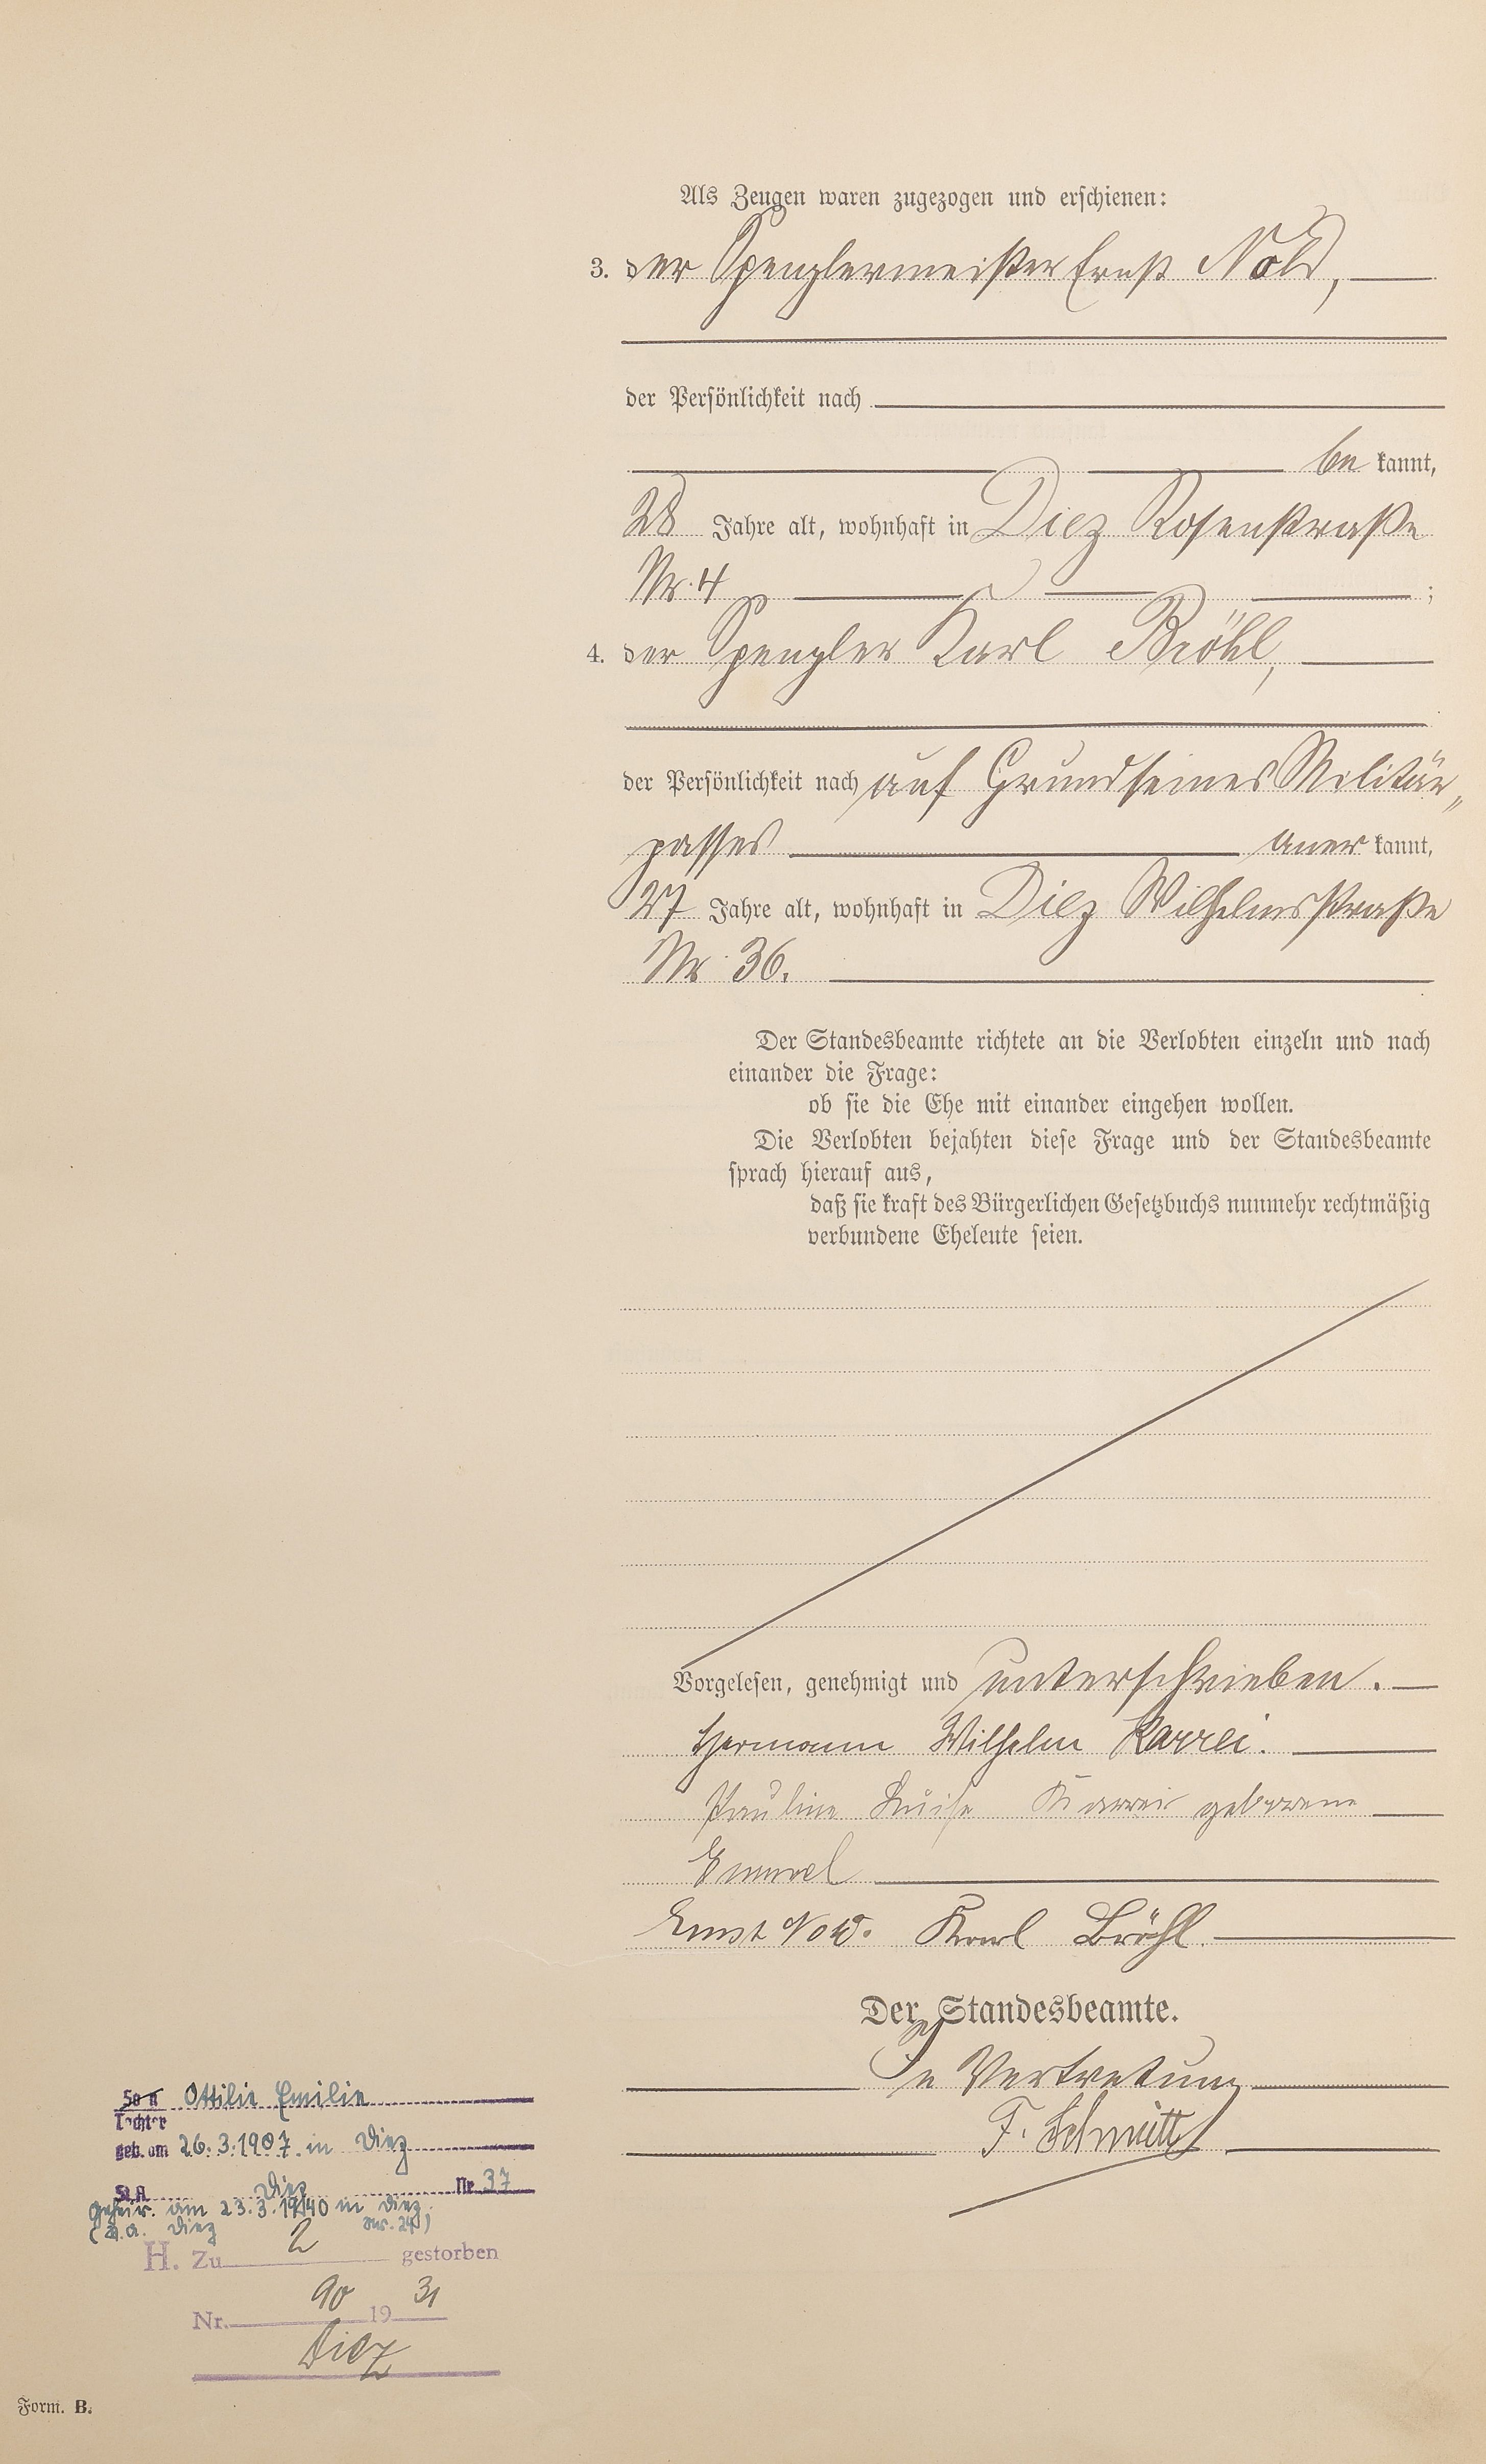 Als Zeugen waren zugezogen und erschienen:
3. der Spenglermeister Ernst Nold,
der Persönlichkeit nach
be kannt,
28 Jahre alt, wohnhaft in Diez Rosenstraße
Nr. 4 ;
4. der Spengler Karl Bröhl,
der Persönlichkeit nach auf Grund seines Militär„
passes aner kannt,
27 Jahre alt, wohnhaft in Diez Wilhelmsstraße
Nr. 36.
Der Standesbeamte richtete an die Verlobten einzeln und nach
einander die Frage:
ob sie die Ehe mit einander eingehen wollen.
Die Verlobten bejahten diese Frage und der Standesbeamte
sprach hierauf aus,
daß sie kraft des Bürgerlichen Gesetzbuchs nunmehr rechtmäßig
verbundene Eheleute seien.
Vorgelesen, genehmigt und unterschrieben.
Hermann Wilhelm Karrei.
Pauline Luise Karrei geborene
Ernst Nold. Karl Bröhl.
Der Standesbeamte.
In Vertretung
F. Schmitt
Sohn Ottilie Emilie
Tochter
geb. am 26.3.1907 in Diez
St.A. Diez Nr. 37
Geheir. am 23.3.1940 in Diez
(St.A. Diez Nr. 24)
H. Zu 2 gestorben
Nr. 90 1931
Diez
Form. B.